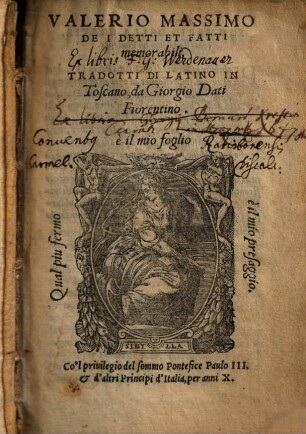 VALERIO MASSIMO
DE I DETTI ET FATTI
memorabili,
Ex libris F. G. Werdenauer
TRADOTTI DI LATINO IN
Toscano, da Giorgio Dati
Fiorentino.
Ex libris
Conventus
è il mio foglio
Ratisbonensis
Carmel.
Discal.
Qual piu fermo
è il mio presaggio.
SIBY LLA.
Co'l priuilegio del sommo Pontefice Paulo III.
& d'altri Principi d'Italia, per anni X.